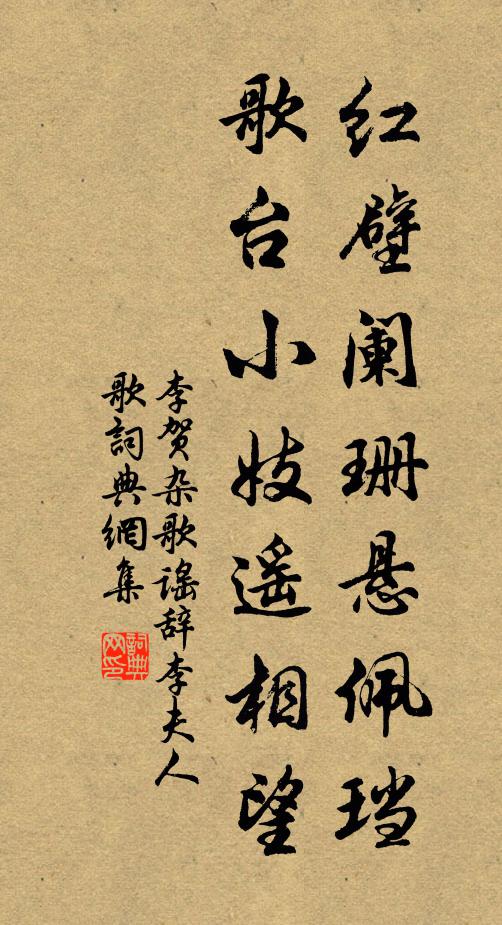 红壁阑珊悬佩珰
歌台小妓遥相望
李贺杂歌谣辞李夫人
歌词典網集
詞典
网印